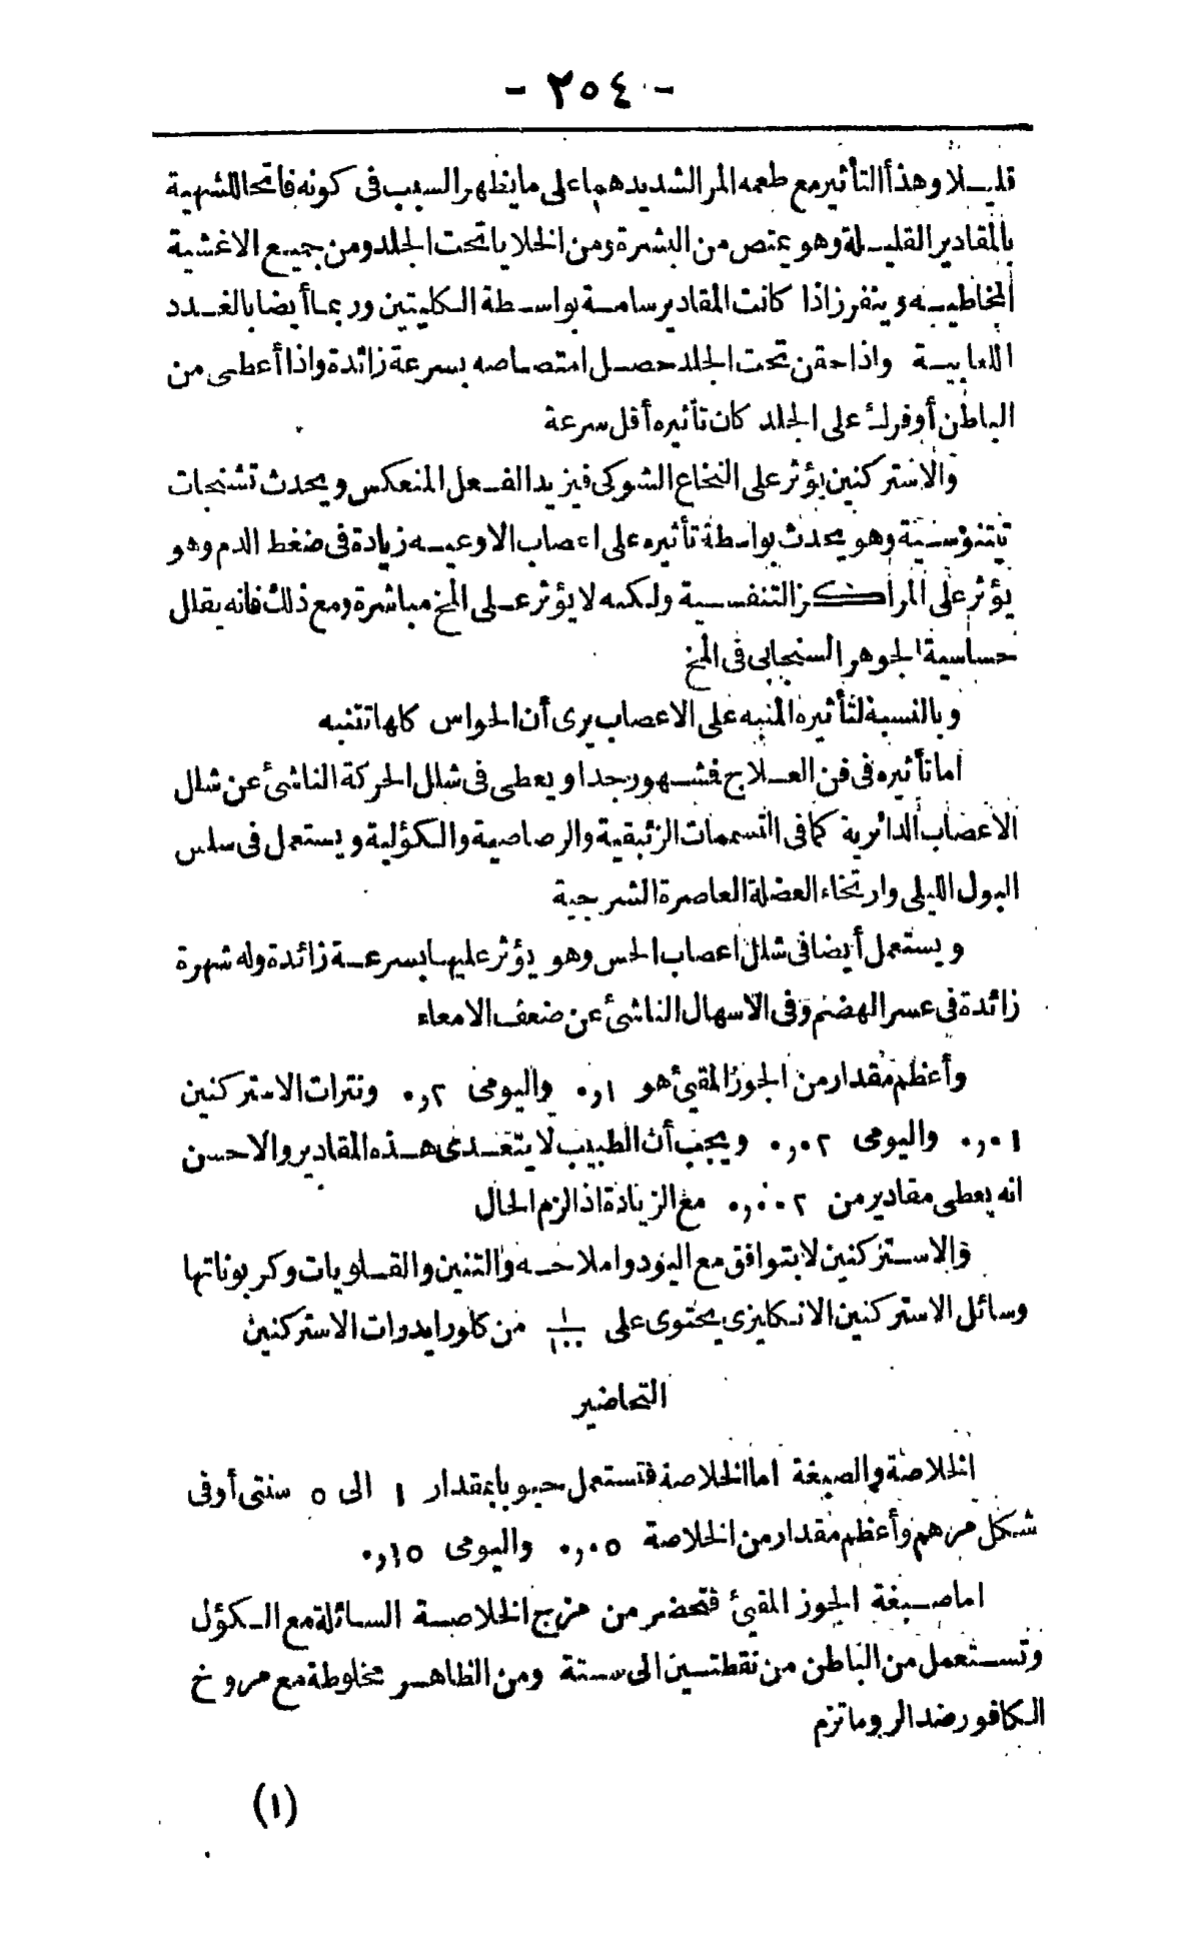 - ٢٥٤ -
قليلا وهذا التأثير مع طعمه المر الشديد هما على ما يظهر السبب فى كونه فاتحا للشهية
بالمقادير القليلة وهو يمتص من البشرة ومن الخلايا تحت الجلد ومن جميع الاغشية
المخاطيه وينفرز اذا كانت المقادير سامة بواسطة الكليتين وربما أيضا بالغدد
اللعابية واذا حقن تحت الجلد حصل امتصاصه بسرعة زائدة واذا أعطى من
الباطن أو فرك على الجلد كان تأثيره أقل سرعة
والاستركنين يؤثر على النخاع الشوكى فيزيد الفعل المنعكس ويحدث تشنجات
تيتنوسية وهو يحدث بواسطة تأثيره على اعصاب الاوعيه زيادة فى ضغط الدم وهو
يؤثر على المراكز التنفسية ولكنه لا يؤثر على المخ مباشرة ومع ذلك فانه يقلل
حساسية الجوهر السنجابى فى المخ
وبالنسبة لتأثيره المنبه على الاعصاب يرى أن الحواس كلها تتنبه
اما تأثيره فى فن العلاج فشهور جدا ويعطى فى شلل الحركة الناشئ عن شلل
الاعضاب الدائرية كما فى التسممات الزئبقية والرصاصية والكؤلية ويستعمل فى سلس
البول الليلى وارتخاء العضلة العاصرة الشرجية
ويستعمل أيضا فى شلل اعصاب الحس وهو يؤثر عليها بسرعة زائدة وله شهرة
زائدة فى عسر الهضم وفى الاسهال الناشئ عن ضعف الامعاء
وأعظم مقدار من الجوز المقيئ هو ٠,١ واليومى ٠,٢ ونترات الاستركنين
٠,٠١ واليومى ٠,٠٢ ويجب أن الطبيب لا يتعدى هذه المقادير والاحسن
انه يعطى مقادير من ٠,٠٠٢ مع الزيادة اذا لزم الحال
والاستركنين لا يتوافق مع اليود واملاحه والتنين والقلويات وكربوناتها
وسائل الاستركنين الانكليزى يحتوى على ١/١٠٠ من كلورايدرات الاستركنين
التحاضير
الخلاصة والصبغة اما الخلاصة فتستعمل حبوبا بمقدار ١ الى ٥ سنتى أو فى
شكل مرهم وأعظم مقدار من الخلاصة ٠,٠٥ واليومى ٠,١٥
اما صبغة الجوز المقيئ فتحضر من مزج الخلاصة السائلة مع الكؤل
وتستعمل من الباطن من نقطتين الى ستة ومن الظاهر مخلوطة مع مروخ
الكافور ضد الروماتزم
(١)